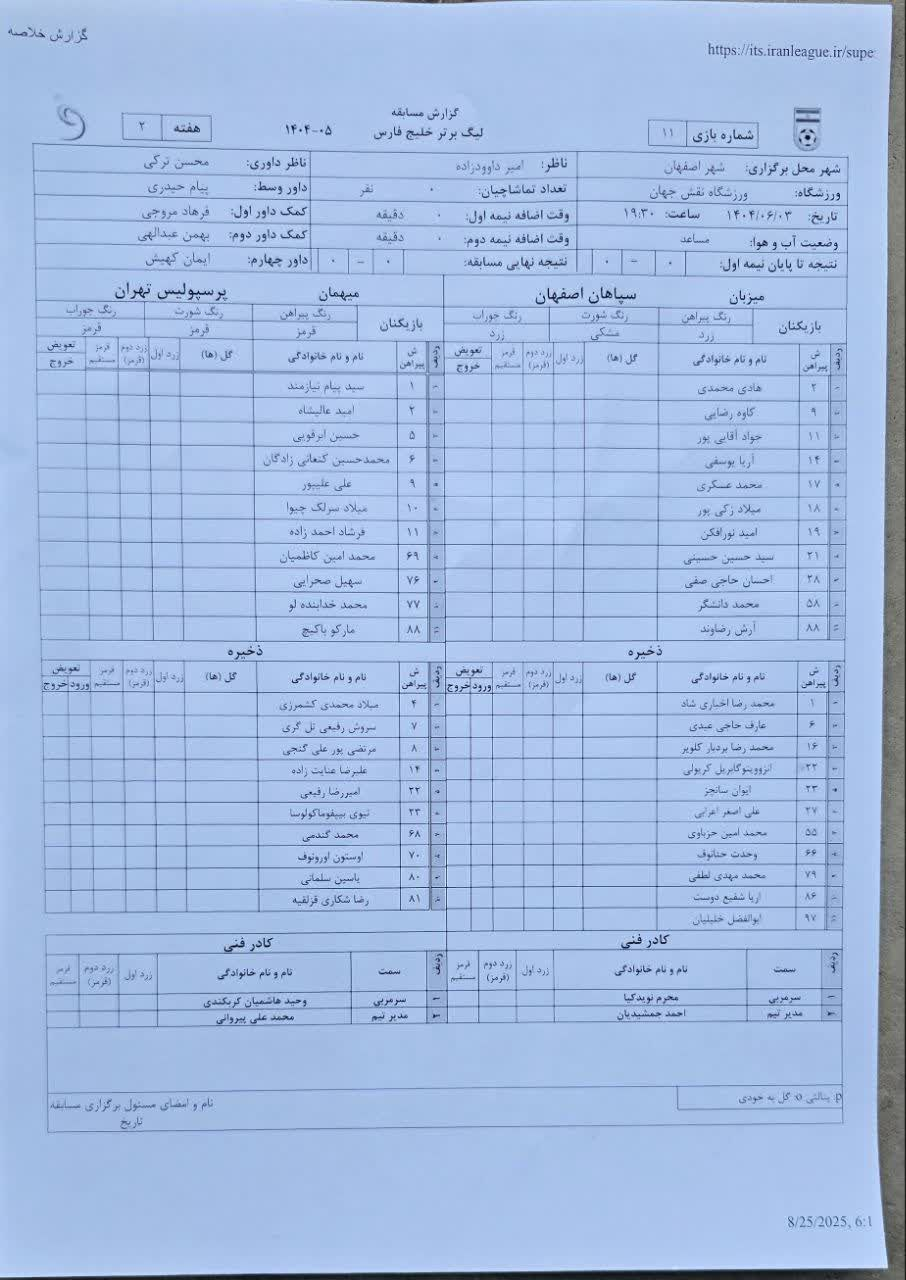 گزارش خلاصه
https://its.iranleague.ir/supe
گزارش مسابقه
لیگ برتر خلیج فارس ۰۵-۱۴۰۴
شماره بازی ۱۱
هفته ۲
شهر محل برگزاری: شهر اصفهان ناظر: امیر داوودزاده ناظر داوری: محسن ترکی
ورزشگاه: ورزشگاه نقش جهان تعداد تماشاچیان: ۰ نفر داور وسط: پیام حیدری
تاریخ: ۱۴۰۴/۰۶/۰۳ ساعت: ۱۹:۳۰ وقت اضافه نیمه اول: ۰ دقیقه کمک داور اول: فرهاد مروجی
وضعیت آب و هوا: مساعد وقت اضافه نیمه دوم: ۰ دقیقه کمک داور دوم: بهمن عبدالهی
نتیجه تا پایان نیمه اول: ۰ - ۰ نتیجه نهایی مسابقه: ۰ - ۰ داور چهارم: ایمان کهیش
میزبان سپاهان اصفهان
بازیکنان رنگ پیراهن رنگ شورت رنگ جوراب
زرد مشکی زرد
ردیف ش پیراهن نام و نام خانوادگی گل (ها) زرد اول زرد دوم (قرمز) قرمز مستقیم تعویض خروج
۲ هادی محمدی
۹ کاوه رضایی
۱۱ جواد آقایی پور
۱۴ آریا یوسفی
۱۷ محمد عسکری
۱۸ میلاد زکی پور
۱۹ امید نورافکن
۲۱ سید حسین حسینی
۲۸ احسان حاجی صفی
۵۸ محمد دانشگر
۸۸ آرش رضاوند
ذخیره
ردیف ش پیراهن نام و نام خانوادگی گل (ها) زرد اول زرد دوم (قرمز) قرمز مستقیم تعویض ورود خروج
۱ محمد رضا اخباری شاد
۶ عارف حاجی عیدی
۱۶ محمد رضا بردبار کلویر
۲۲ انزووینوگابریل کریولی
۲۳ ایوان سانچز
۲۷ علی اصغر اعرابی
۵۵ محمد امین حزباوی
۶۶ وحدت حنانوف
۷۹ محمد مهدی لطفی
۸۶ اریا شفیع دوست
۹۷ ابوالفضل خلیلیان
کادر فنی
ردیف سمت نام و نام خانوادگی زرد اول زرد دوم (قرمز) قرمز مستقیم
۱ سرمربی محرم نویدکیا
۲ مدیر تیم احمد جمشیدیان
میهمان پرسپولیس تهران
بازیکنان رنگ پیراهن رنگ شورت رنگ جوراب
قرمز قرمز قرمز
ردیف ش پیراهن نام و نام خانوادگی گل (ها) زرد اول زرد دوم (قرمز) قرمز مستقیم تعویض خروج
۱ سید پیام نیازمند
۲ امید عالیشاه
۵ حسین ابرقویی
۶ محمدحسین کنعانی زادگان
۹ علی علیپور
۱۰ میلاد سرلک چیوا
۱۱ فرشاد احمد زاده
۶۹ محمد امین کاظمیان
۷۶ سهیل صحرایی
۷۷ محمد خدابنده لو
۸۸ مارکو باکیچ
ذخیره
ردیف ش پیراهن نام و نام خانوادگی گل (ها) زرد اول زرد دوم (قرمز) قرمز مستقیم تعویض ورود خروج
۴ میلاد محمدی کشمرزی
۷ سروش رفیعی تل گری
۸ مرتضی پور علی گنجی
۱۴ علیرضا عنایت زاده
۲۲ امیررضا رفیعی
۲۳ تیوی بییفوماکولوسا
۶۸ محمد گندمی
۷۰ اوستون اورونوف
۸۰ یاسین سلمانی
۸۱ رضا شکاری قزلقیه
کادر فنی
ردیف سمت نام و نام خانوادگی زرد اول زرد دوم (قرمز) قرمز مستقیم
۱ سرمربی وحید هاشمیان کربکندی
۲ مدیر تیم محمد علی پیروانی
p: پنالتی o: گل به خودی
نام و امضای مسئول برگزاری مسابقه
تاریخ
8/25/2025, 6:1